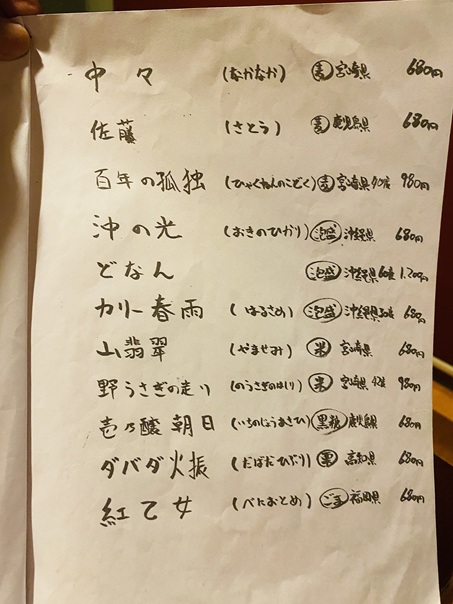 中々 (なかなか) 麦 宮崎県 680円
佐藤 (さとう) 麦 鹿児島県 680円
百年の孤独 (ひゃくねんのこどく) 麦 宮崎県 40度 980円
沖の光 (おきのひかり) 泡盛 沖縄県 680円
どなん 泡盛 沖縄県 60度 1,200円
カリー春雨 (はるさめ) 泡盛 沖縄県 30度 680円
山翡翠 (やませみ) 米 宮崎県 680円
野うさぎの走り (のうさぎのはしり) 米 宮崎県 980円
壱乃醸 朝日 (いちのじょうあさひ) 黒糖 680円
ダバダ火振 (だばだひぶり) 栗 高知県 680円
紅乙女 (べにおとめ) ごま 福岡県 680円